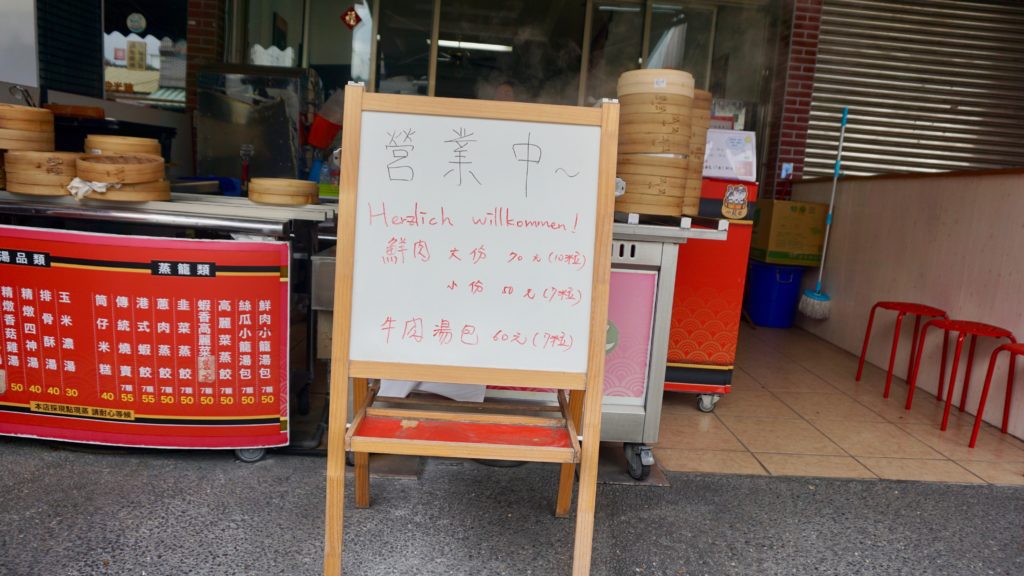 營業中~
Herzlich willkommen!
鮮肉 大份 90元(10粒)
小份 50元(7粒)
牛肉湯包 60元(7粒)
湯品類
蒸籠類
鮮肉小籠湯包 7顆 50
絲瓜小籠湯包 50
高麗菜蒸餃 50
蝦香高麗菜 50
韭菜蒸餃 7顆 50
蔥肉蒸餃 7顆 50
港式蝦餃 7顆 55
傳統燒賣 7顆 55
筒仔米糕 40
玉米濃湯 30
排骨酥湯 40
精燉四神湯 40
精燉香菇雞湯 50
本店採現點現蒸 請耐心等候